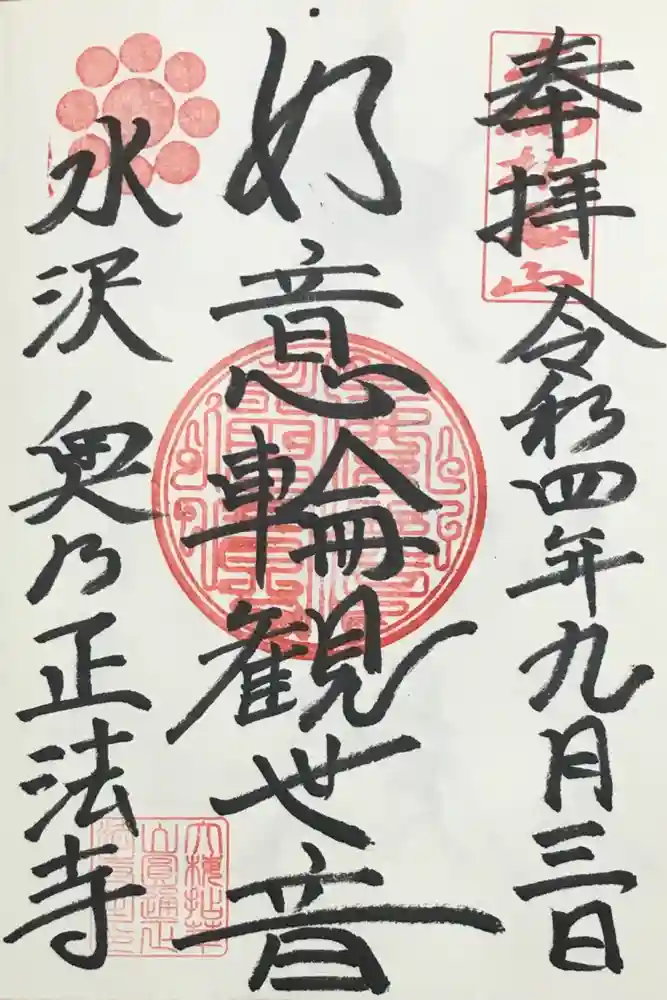 奉拝 令和四年九月三日
如意輪観世音
水沢 奥乃正法寺